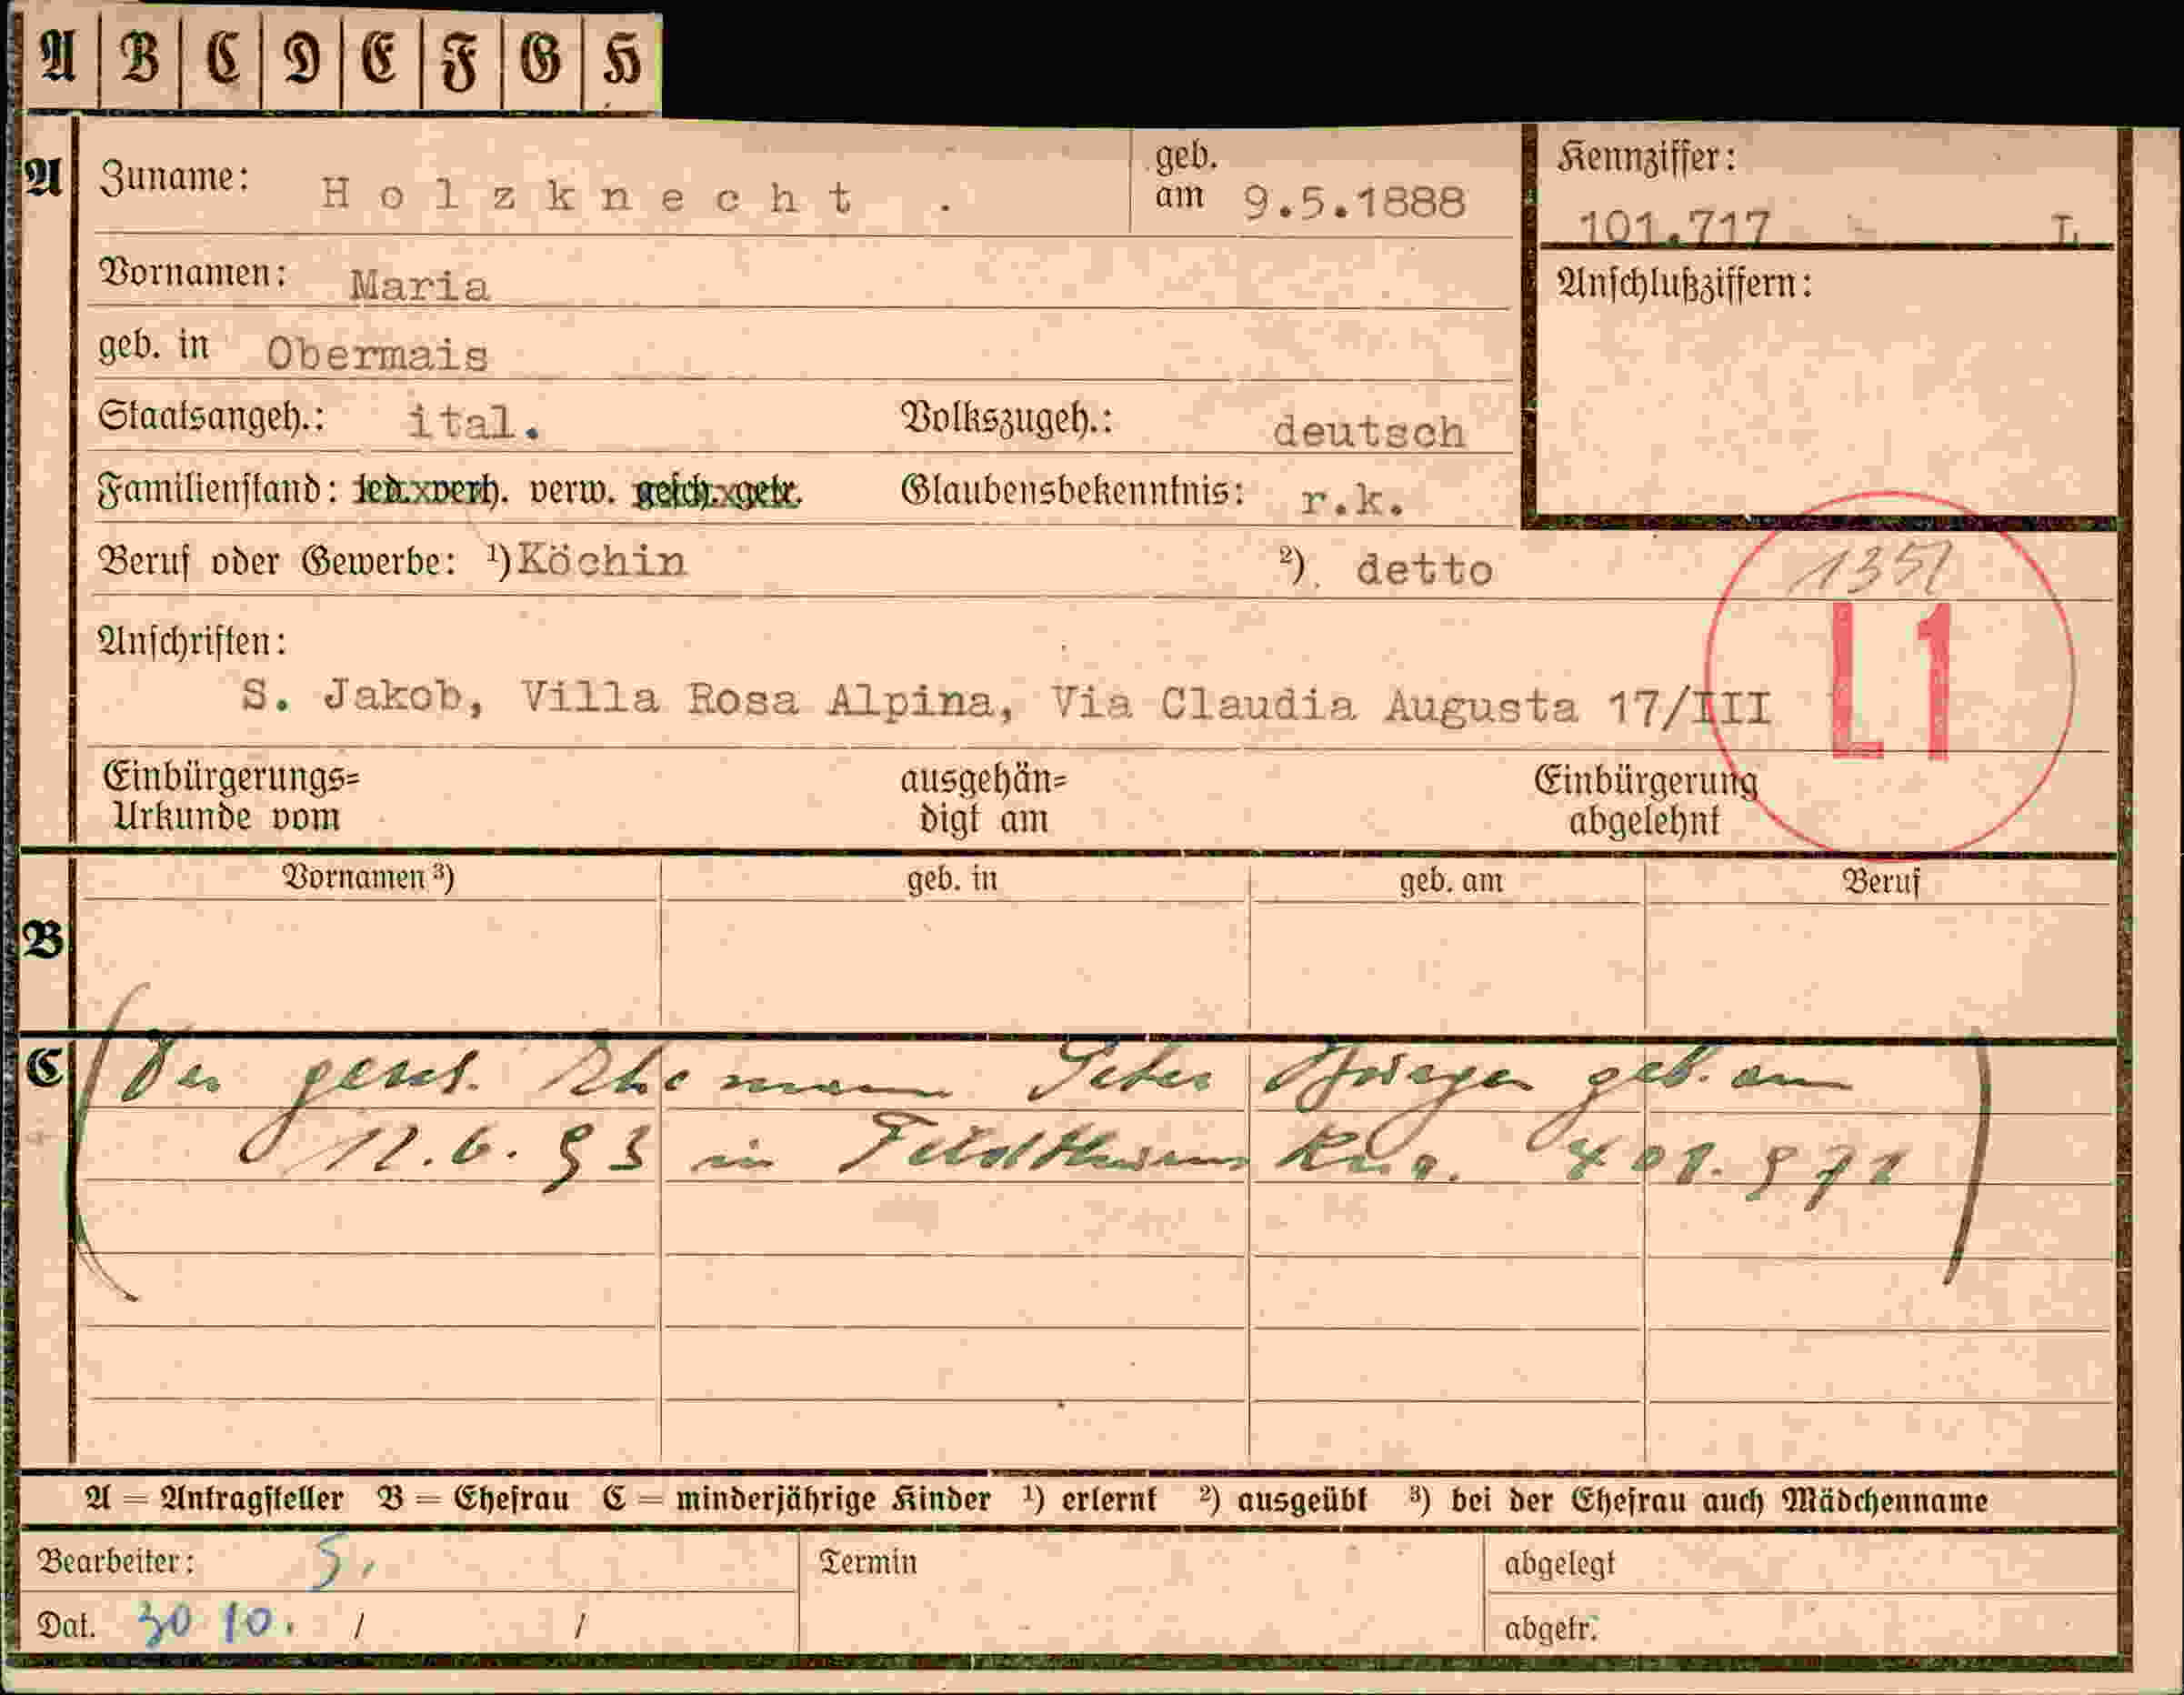 A B C D E F G H
A Zuname: Holzknecht . geb. am 9.5.1888
Kennziffer: 101.717 L
Vornamen: Maria
Anschlußziffern:
geb. in Obermais
Staatsangeh.: ital. Volkszugeh.: deutsch
Familienstand: led. verh. verw. gesch. getr. Glaubensbekenntnis: r.k.
Beruf oder Gewerbe: ¹) Köchin ²) detto
135
L1
Anschriften:
S. Jakob, Villa Rosa Alpina, Via Claudia Augusta 17/III
Einbürgerungs= ausgehän= Einbürgerung
Urkunde vom digt am abgelehnt
Vornamen ³) geb. in geb. am Beruf
B
C
(Der gesch. Ehemann Peter geb. am
12.6.93 in)
A = Antragsteller B = Ehefrau C = minderjährige Kinder ¹) erlernt ²) ausgeübt ³) bei der Ehefrau auch Mädchenname
Bearbeiter: S. Termin abgelegt
Dat. 30 10. / / abgetr.